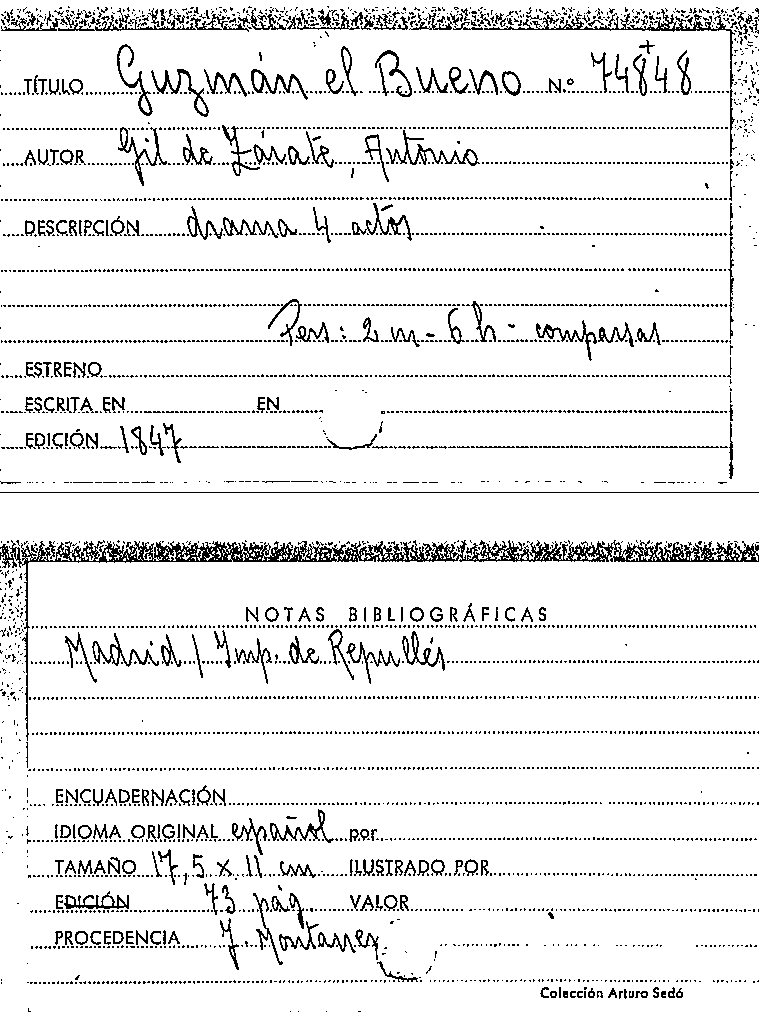 TÍTULO Guzmán el Bueno N.º 74848
AUTOR Gil de Zárate, Antonio
DESCRIPCIÓN drama 4 actos
Pers: 2 m - 6 h - comparsas
ESTRENO
ESCRITA EN EN
EDICIÓN 1847
NOTAS BIBLIOGRÁFICAS
Madrid / Imp. de Repullés
ENCUADERNACIÓN
IDIOMA ORIGINAL español por
TAMAÑO 17,5 x 11 cm ILUSTRADO POR
EDICIÓN 73 pág. VALOR
PROCEDENCIA J. Montaner
Colección Arturo Sedó